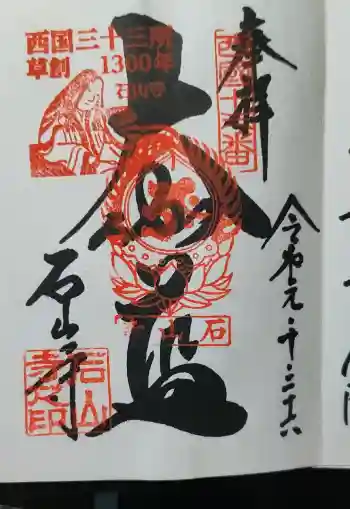 奉拝
西國十三番
令和元・十・二十六
西国三十三所
草創 1300年
石山寺
大伽藍
石山寺
石山寺